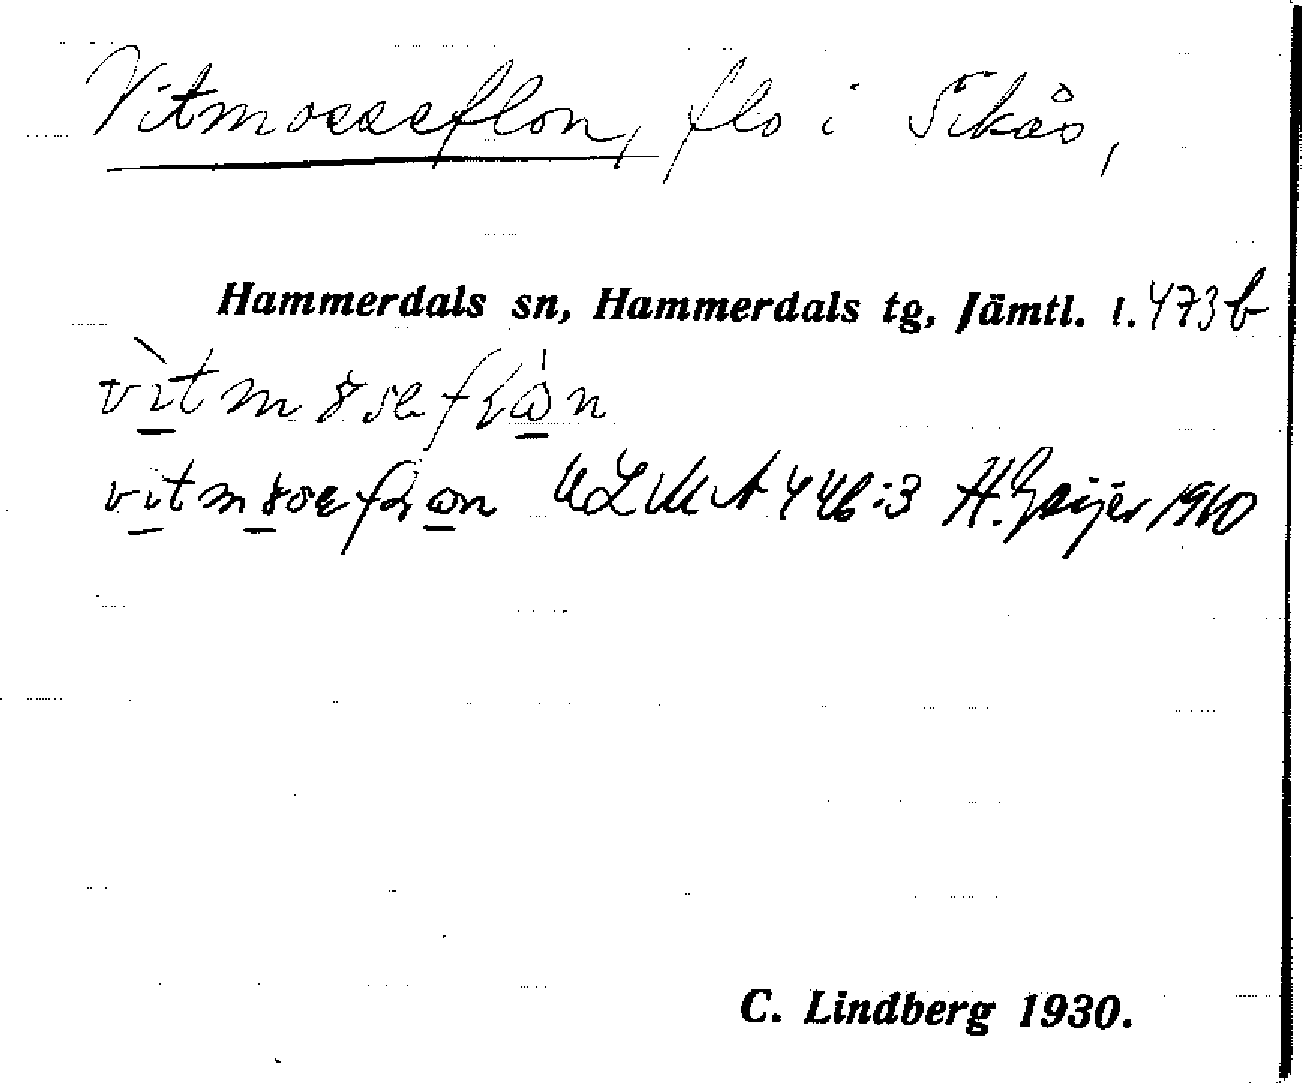 Vitmosseflon, flo i Sikås,
Hammerdals sn, Hammerdals tg, Jämtl. l. 473 b
ULMA 446:3 H. Geijer 1910
C. Lindberg 1930.